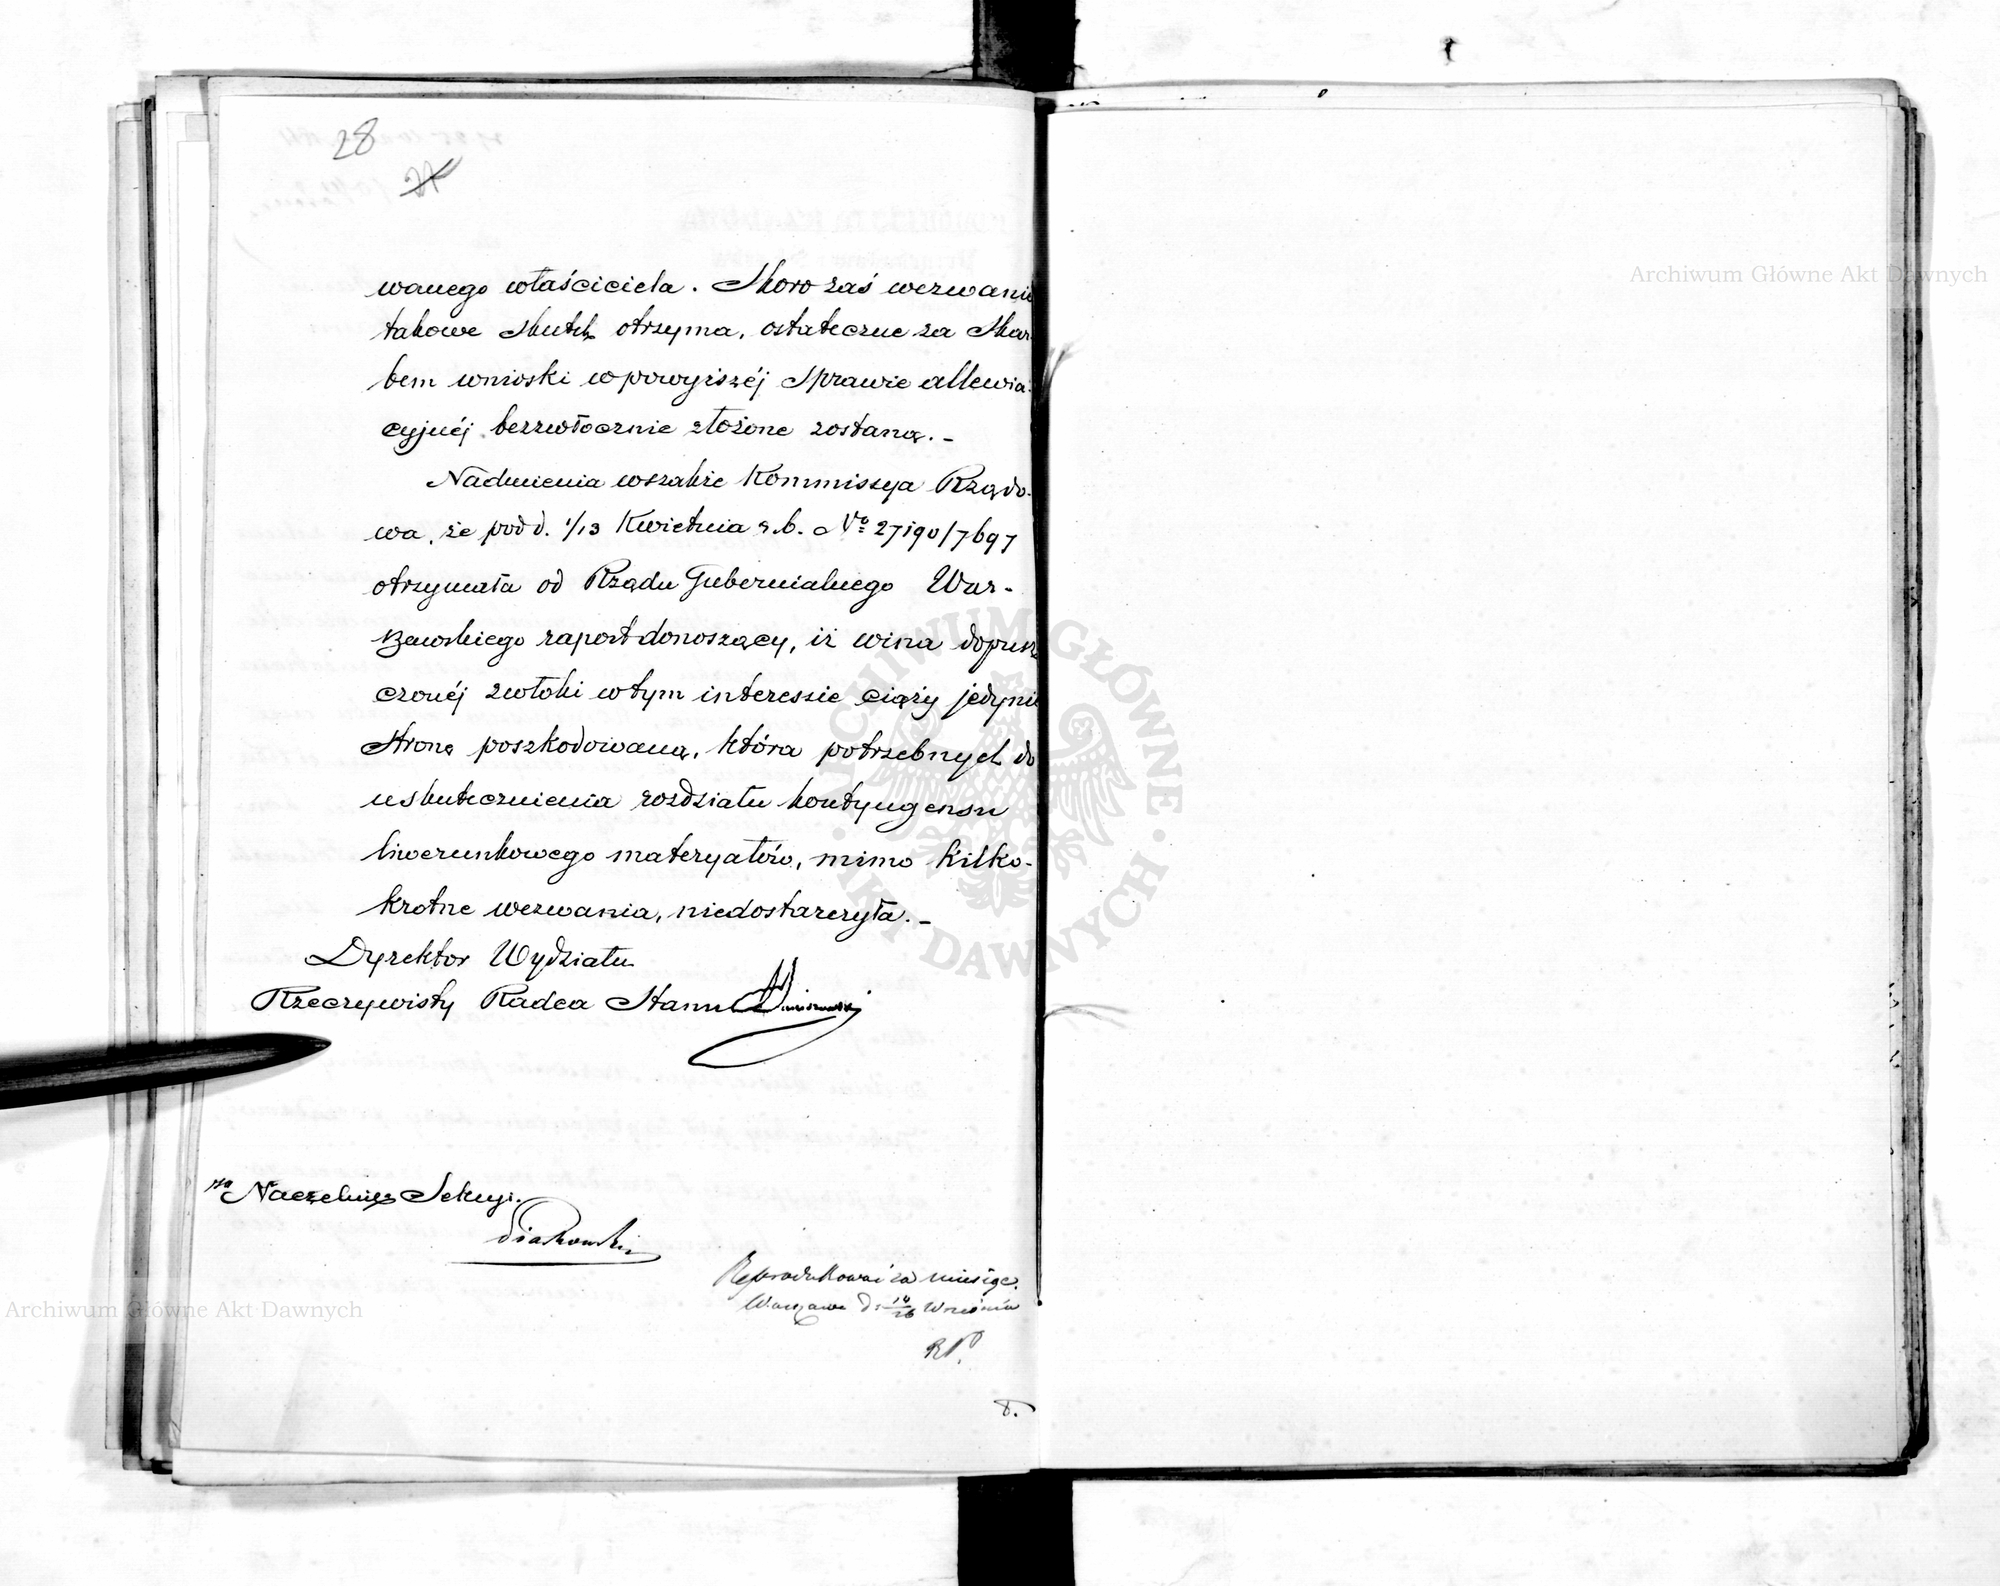 28
wanego właściciela. Skoro zaś wezwanie
takowe skutek otrzyma, ostateczne za Skar-
bem wnioski w powyższéj Sprawie allewia-
cyjnéj bezzwłocznie złożone zostaną.-
Nadmienia wszakże Kommissya Rządo-
wa, że pod d. 1/13 Kwietnia r.b. No 27190/7697
otrzymała od Rządu Gubernialnego War-
szawskiego raport donoszący, iż wina dopusz
czonéj zwłoki w tym interessie ciąży jedynie
Stronę poszkodowaną, która potrzebnych do
uskutecznienia rozdziału kontyngensu
liwerunkowego materyałów, mimo kilko-
krotne wezwania, niedostarczyła.-
Dyrektor Wydziału
Rzeczywisty Radca Stanu
za Naczelnik Sekcyi.
Piaskowski
Reprodukować za miesiąc.
Warszawa d. 14/26 Września
RP.
Archiwum Główne Akt Dawnych
Archiwum Główne Akt Dawnych
ARCHIWUM GŁÓWNE · AKT DAWNYCH ·